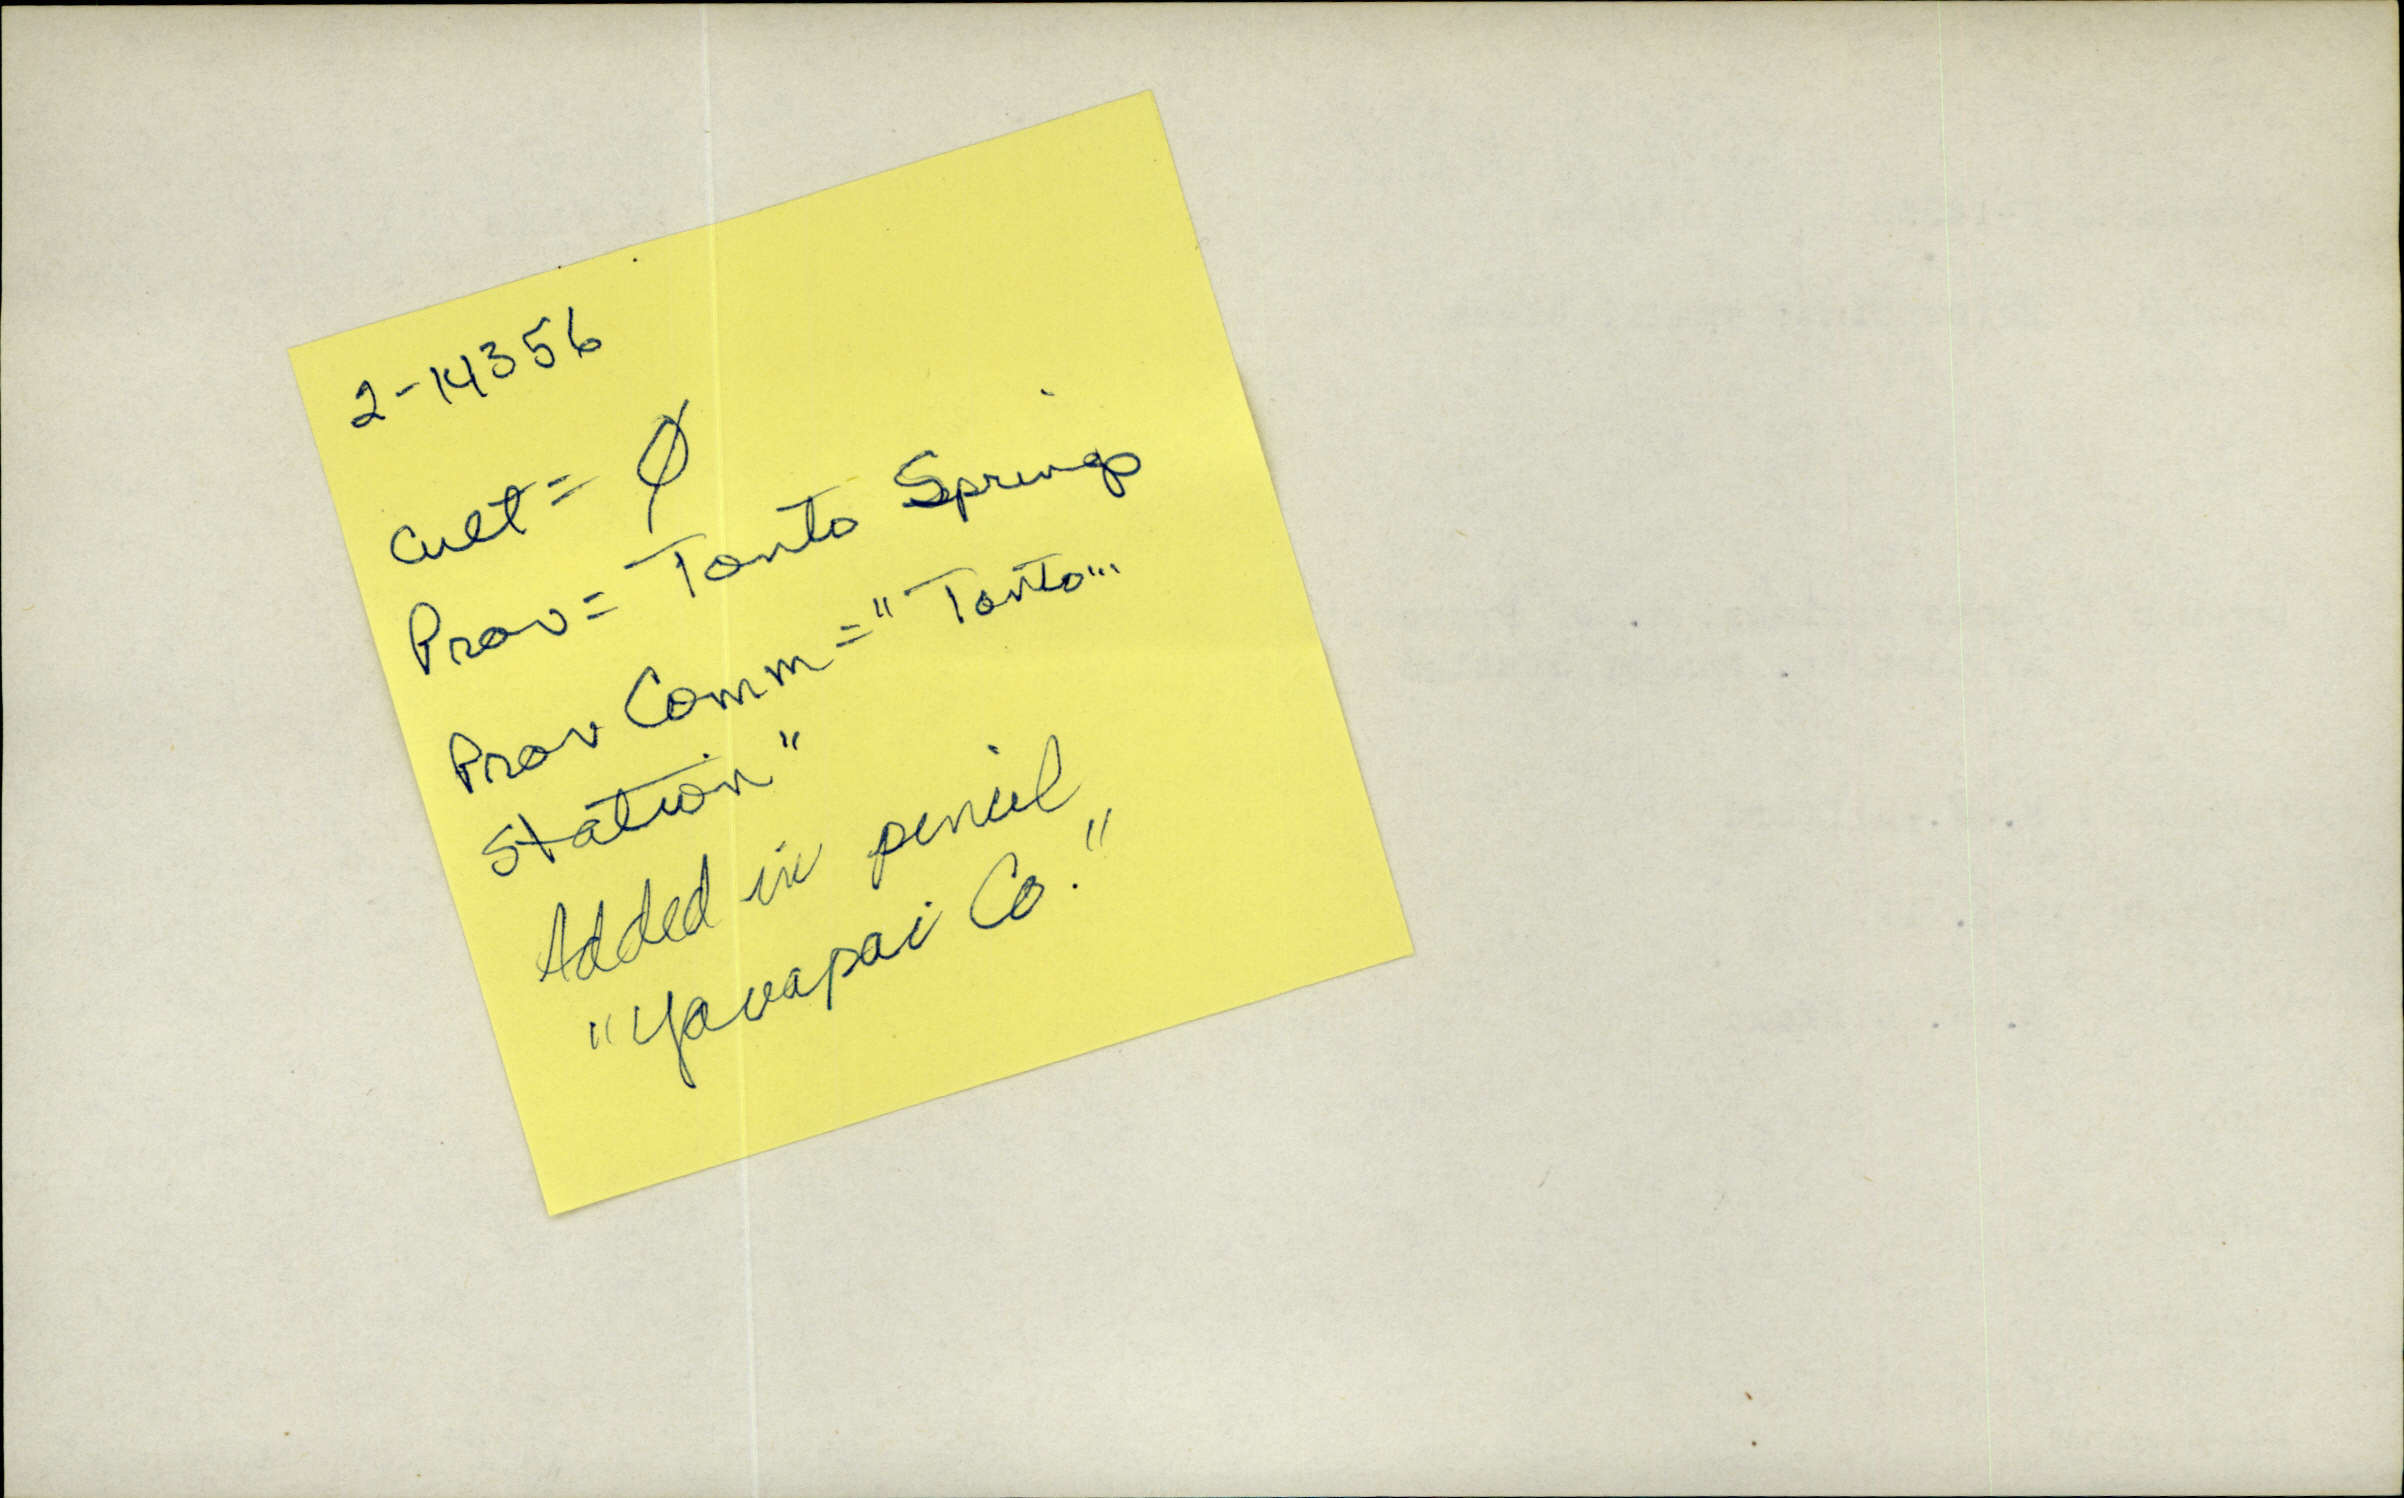 2-14356
Cult = Ø
Prov = Tonto Springs
Prov Comm = "Tonto"
Station"
Added in pencil
"Yavapai Co."